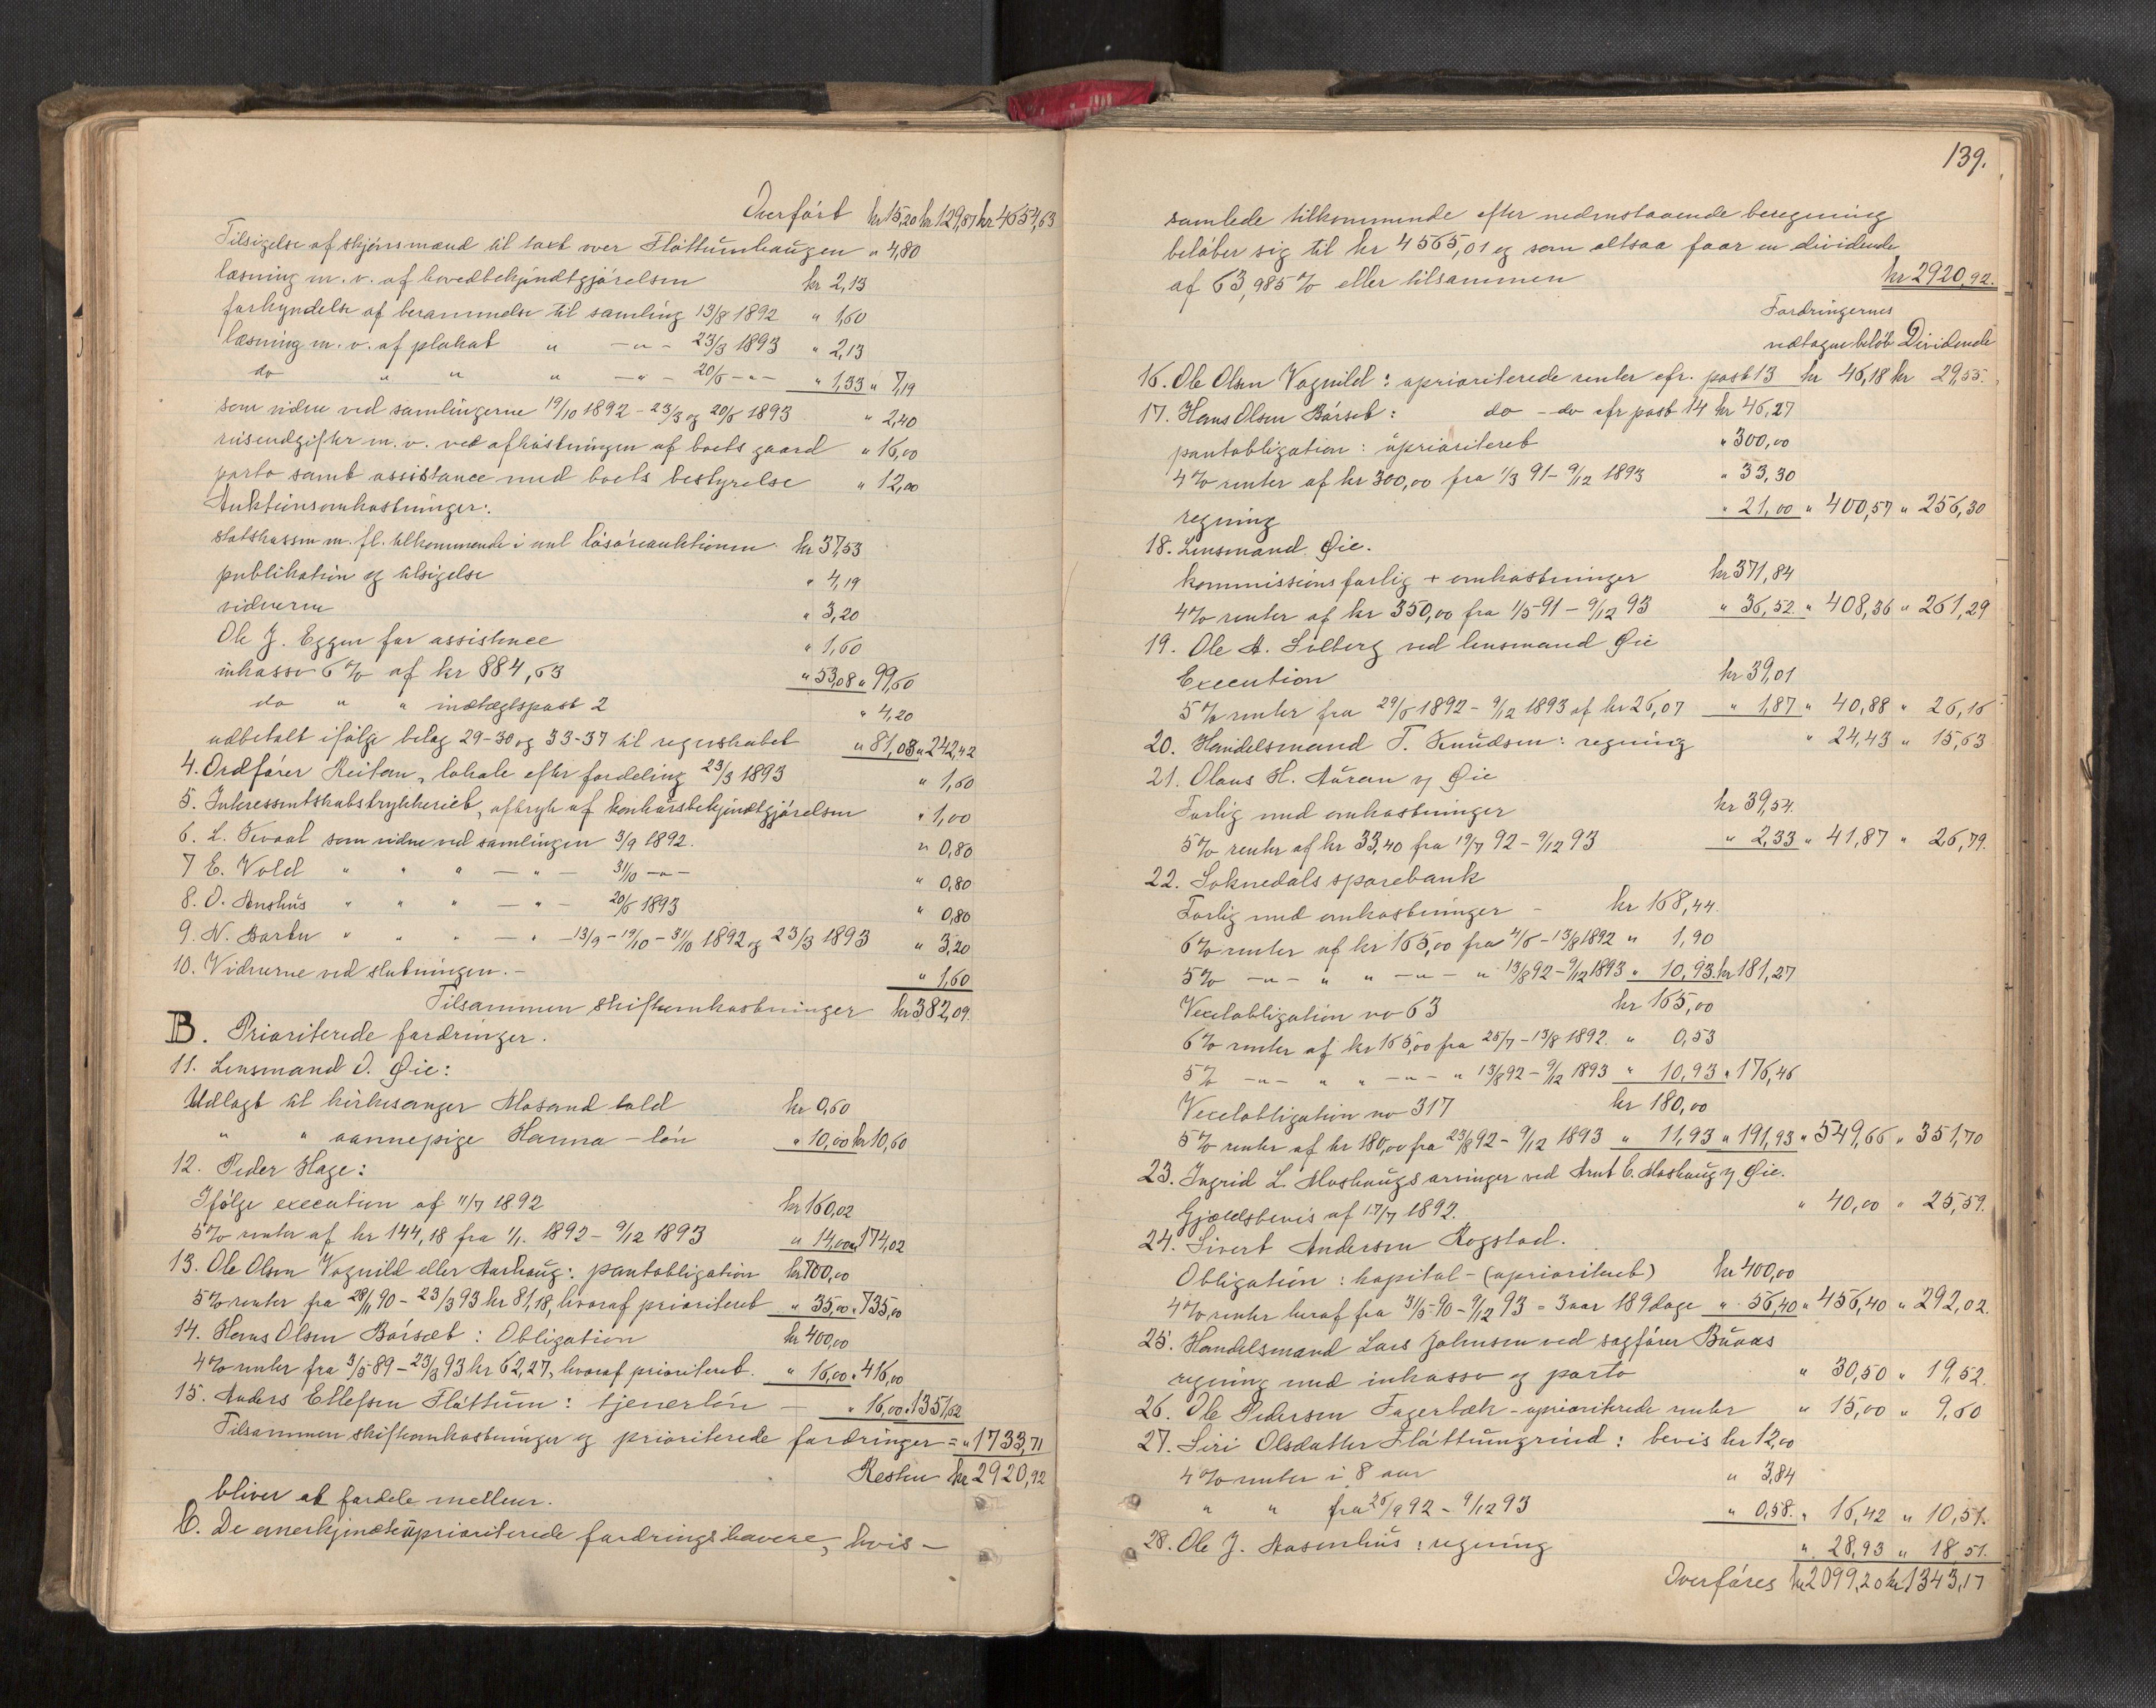 Overført kr 15,20 kr 129,87 kr 4654,63
Tilsigelse af skjønsmænd til taxt over Fløttumhaugen " 4,80
læsning m. v. af hovedbekjendtgjørelsen kr 2,13
forkyndelse af berammelse til samling 13/8 1892 " 1,60
læsning m. v. af plakat " —"— 23/3 1893 " 2,13
do " " " —"— 20/6 —"— " 1,33 " 7,19
som vidne ved samlingerne 19/10 1892 – 23/3 og 20/6 1893 " 2,40
reiseudgifter m. v. ved afhøstningen af boets gaard " 16,00
porto samt assistance med boets bestyrelse " 12,00
Auktionsomkostninger:
statskassen m. fl. tilkommende i anl løsøreauktionen kr 37,53
publikation og tilsigelse " 4,19
vidnerne " 3,20
Ole J. Eggen for assistence " 1,60
inkasso 6% af kr 884,63 " 53,08 " 99,60
do " " indtægtspost 2 " 4,20
udbetalt ifølge bilag 29-30 og 33-37 til regnskabet " 81,03 " 242,42
4. Ordfører Reitan, lokale efter fordeling 23/3 1893 " 1,60
5. Interessentskabstrykkeriet, aftryk af konkursbekjendtgjørelsen " 1,00
6. L. Kvaal som vidne ved samlingen 3/9 1892. " 0,80
7 E. Vold " " " — " — 31/10 —"— " 0,80
8. O. Aenshus " " " — " — 20/6 1893 " 0,80
9. N. Barbu " " " — " 13/9 – 19/10 – 31/10 1892 og 23/3 1893 " 3,20
10. Vidnerne ved slutningen. – " 1,60
Tilsammen skifteomkostninger kr 382,09.
B. Prioriterede fordringer.
11. Lensmand O. Øie:
Udlagt til kirkesanger Mosand told kr 0,60
" " aannepige Hanna – løn " 10,00 kr 10,60
12. Peder Hage:
Ifølge execution af 11/7 1892 kr 160,02
5% renter af kr 144,18 fra 1/1. 1892 – 9/12 1893 " 14,00 " 174,02
13. Ole Olsen Vognild eller Aarhaug: pantobligation kr 700,00
5% renter fra 28/11 90 – 23/3 93 kr 81,18, hvoraf prioriteret " 35,00 " 735,00
14. Hans Olsen Børset: Obligation kr 400,00
4% renter fra 3/5 89 – 23/3 93 kr 62,27, hvoraf prioriteret. " 16,00 " 416,00
15. Anders Ellefsen Fløttum: tjenerløn — " 16,00 " 1351,62
Tilsammen skifteomkostninger og prioriterede fordringer = " 1733,71
Resten kr 2920,92
bliver at fordele mellem.
C. De anerkjendte uprioriterede fordringshavere, hvis –
139.
samlede tilkommende efter nedenstaaende beregning
beløber sig til kr 4565,01 og som altsaa faar en dividende
af 63,985% eller tilsammen kr 2920,92.
Fordringernes
vedtagne beløb Dividende
16. Ole Olsen Vognild: uprioriterede renter cfr. post 13 kr 46,18 kr 29,55.
17. Hans Olsen Børset: do – do cfr post 14 kr 46,27
pantobligation: uprioriteret " 300,00
4% renter af kr 300,00 fra 1/3 91 – 9/12 1893 " 33,30
regning " 21,00 " 400,57 " 256,30
18. Lensmand Øie.
kommissionsforlig + omkostninger kr 371,84
4% renter af kr 350,00 fra 1/5 91 – 9/12 93 " 36,52 " 408,36 " 261,29
19. Ole A. Solberg ved lensmand Øie
Execution kr 39,01
5% renter fra 29/6 1892 – 9/12 1893 af kr 26,07 " 1,87 " 40,88 " 26,16
20. Handelsmand T. Knudsen: regning " 24,43 " 15,63
21. Olaus H. Auran v/ Øie
Forlig med omkostninger kr 39,54.
5% renter af kr 33,40 fra 19/7 92 – 9/12 93 " 2,33 " 41,87 " 26,79.
22. Soknedals sparebank
Forlig med omkostninger – kr 168,44.
6% renter af kr 165,00 fra 4/6 – 13/8 1892 " 1,90
5% —"— " " —"— " 13/8 92 – 9/12 1893 " 10,93. kr 181,27
Vexelobligation no 63 kr 165,00
6% renter af kr 165,00 fra 25/7 – 13/8 1892. " 0,53
5% —"— " " —"— " 13/8 92 – 9/12 1893 " 10,93 " 176,46
Vexelobligation no 317 kr 180,00
5% renter af kr 180,00 fra 23/8 92 – 9/12 1893 " 11,93 " 191,93 " 549,66 " 351,70
23. Ingrid L. Moshaugs arvinger ved Arnt C. Moshaug v/ Øie.
Gjældsbevis af 17/7 1892. " 40,00 " 25,59.
24. Sivert Andersen Rogstad.
Obligation: kapital – (uprioriteret) kr 400,00
4% renter heraf fra 31/5 90 – 9/12 93 = 3 aar 189 dage " 56,40 " 456,40 " 292,02.
25. Handelsmand Lars Johnsen ved sagfører Buaas
regning med inkasso og porto " 30,50 " 19,52.
26. Ole Pedersen Fagerbæk – uprioriterede renter " 15,00 " 9,60
27. Siri Olsdatter Fløttumgrind: bevis kr 12,00
4% renter i 8 aar " 3,84
" " fra 25/9 92 – 9/12 93 " 0,58. " 16,42 " 10,51.
28. Ole J. Aasenhus: regning " 28,93 " 18,51.
Overføres kr 2099,20 kr 1343,17